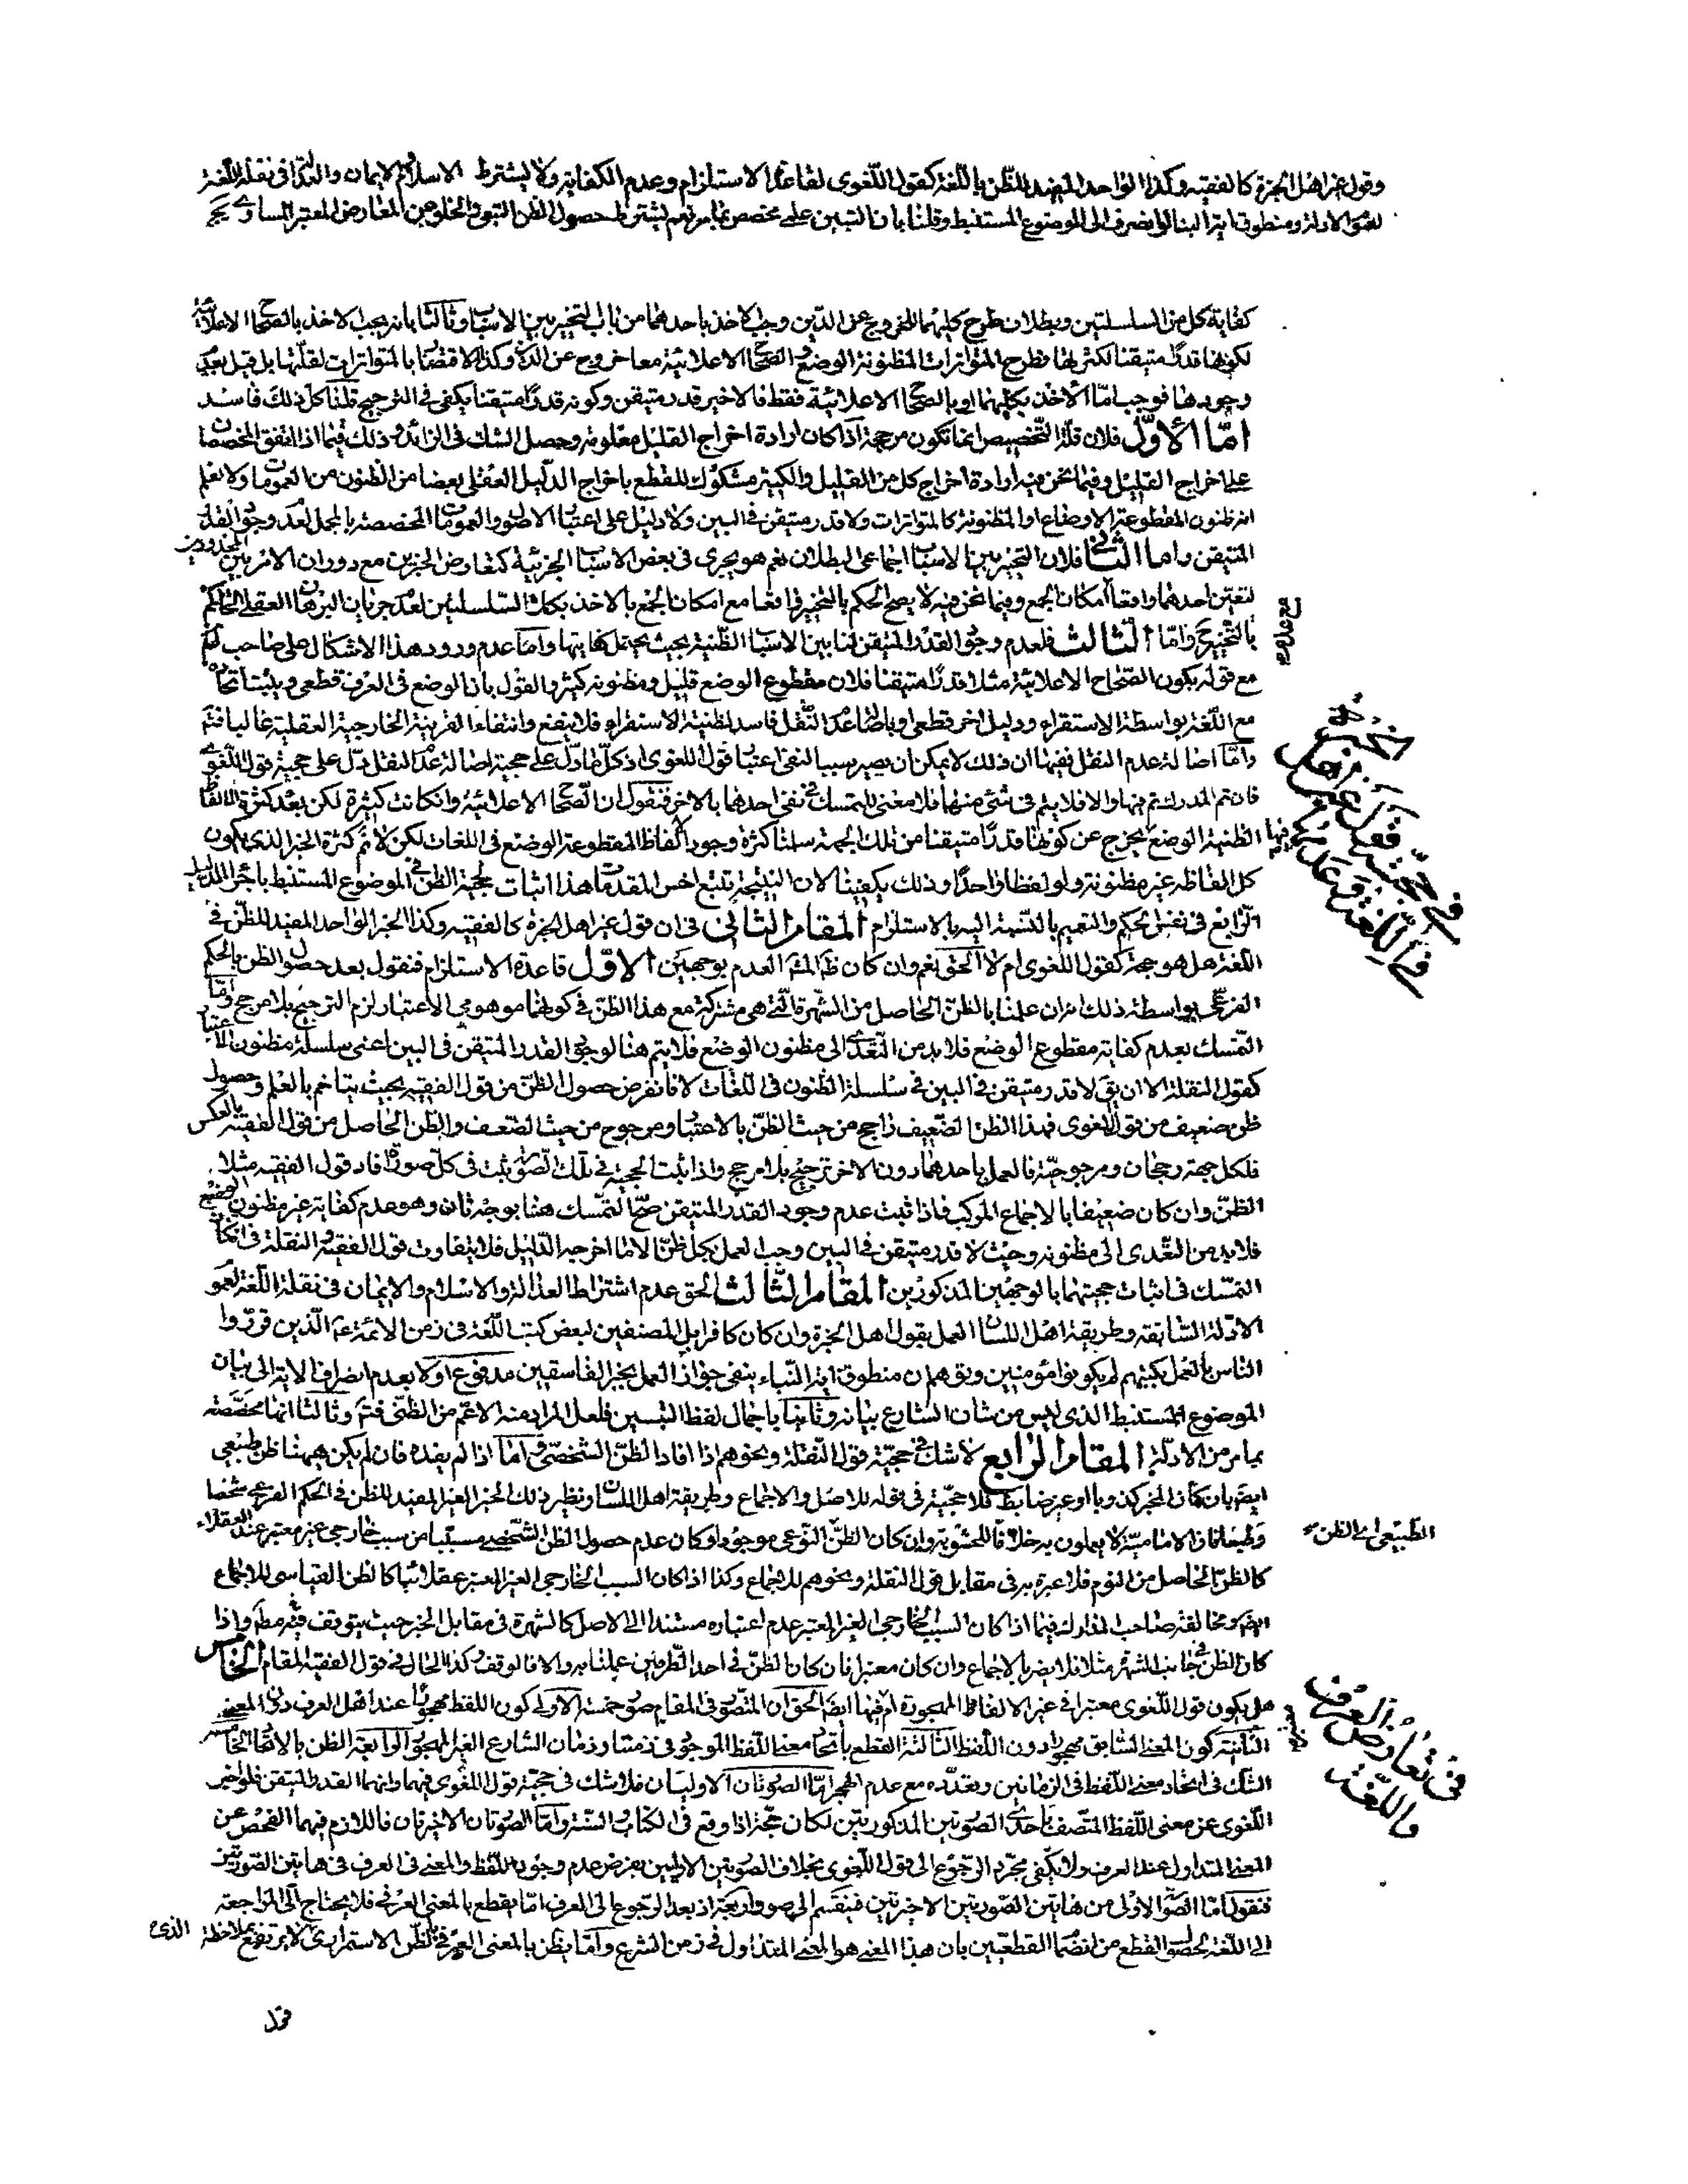 وقول غير اهل الخبرة كالفقيه وكذا الواحد المفيد للظن باللغة كقول اللغوى لقاعدة الاستلزام وعدم الكفاية ولا يشترط الاسلام والايمان والعدالة فى نقلة اللغة
لعموم الادلة ومنطوق اية النبأ لا ينصرف الى الموضوع المستنبط وقلنا بان التبين على مخصص بما مر نعم يشترط حصول الظن والخلو عن المعارض المعتبر المساوى
كفاية كل من السلسلتين وبطلان طرح كليهما للخروج عن الدين وجب الاخذ باحدهما من باب التخيير بين الاسباب وثالثا بانه يجب الاخذ بالصحاح الاعلائية
لكونها قدرا متيقنا لكثرتها وطرح المتواترات المظنونة الوضع والصحاح الاعلائية معا خروج عن الدين وكذا الاقتصار بالمتواترات لقلتها بل قيل بعدم
وجودها فوجب اما الاخذ بكليهما او بالصحاح الاعلائية فقط فالاخير قدر متيقن وكونه قدرا متيقنا يكفى فى الترجيح قلنا كل ذلك فاسد
اما الاول فلان قلة التخصيص انما تكون مرجحة اذا كان ارادة اخراج القليل معلومة وحصل الشك فى الزائد وذلك فيما اذا اتفق المخصصان
على اخراج القليل وفيما نحن فيه ارادة اخراج كل من القليل والكثير مشكوك للقطع باخراج الدليل العقلى بعضا من الظنون من العمومات ولا نعلم
انه ظنون المقطوعة الاوضاع او المظنونة كالمتواترات ولا قدر متيقن فى البين ولا دليل على اعتبار الاصول والعمومات المخصصة بالمجمل لعدم وجود القدر
المتيقن واما الثانى فلان التخيير بين الاسباب اجماعى البطلان نعم هو يجرى فى بعض الاسباب الجزئية كتعارض الخبرين مع دوران الامر بين المحذورين
لتعين احدهما واقعا امكان الجمع وفيما نحن فيه لا يصح الحكم بالتخيير واقعا مع امكان الجمع بالاخذ بكلتا السلسلتين لعدم جريان البرهان العقلى الحاكم
بالتخيير ح واما الثالث فلعدم وجود القدر المتيقن لنا بين الاسباب الظنية بحيث يحتمل كفايتها واما عدم ورود هذا الاشكال على صاحب لم
مع قوله بكون الصحاح الاعلائية مثلا قدرا متيقنا فلان مقطوع الوضع قليل ومظنونه كثير والقول بان الوضع فى العرف قطعى ويثبت اتحاده
مع اللغة بواسطة الاستقراء ودليل اخر قطعى او باصالة عدم النقل فاسد لظنية الاستقراء فلا ينفع وانتفاء القرينة الخارجية العقلية غالبا فتم
واما اصالة عدم النقل ففيها ان ذلك لا يمكن ان يصير سببا لنفى اعتبار قول اللغوى اذ كل ما دل على حجية اصالة عدم النقل دل على حجية قول اللغوى
فان تم المدرك تم فيها والا فلا يتم فى شئ منهما فلا معنى للتمسك فى نفى احدهما بالاخر فنقول ان الصحاح الاعلائية وان كانت كثيرة لكن بعد كثرة الالفاظ
الظنية الوضع فيها يخرج عن كونها قدرا متيقنا من تلك الجهة سلمنا كثرة وجود الفاظ المقطوعة الوضع فى اللغات لكن لا نم كثرة الخبر الذى يكون
كل الفاظه غير مظنونة ولو لفظا واحدا وذلك يكفينا لان النتيجة تتبع اخس المقدمات هذا اثبات لحجية الظن فى الموضوع المستنبط باجراء الدليل
الرابع فى نفس الحكم والتعميم بالنسبة اليه بالاستلزام المقام الثانى فى ان قول غير اهل الخبرة كالفقيه وكذا الخبر الواحد المفيد للظن فى
اللغة هل هو حجة كقول اللغوى ام لا الحق نعم وان كان ظاهر العدم بوجهين الاول قاعدة الاستلزام فنقول بعد حصول الظن بالحكم
الفرعى بواسطة ذلك ان علمنا بالظن الحاصل من الشهرة التى هى مشتركة مع هذا الظن فى كونهما موهومى الاعتبار لزم الترجيح بلا مرجح واما
التمسك بعدم كفاية مقطوع الوضع فلا بد من التعدى الى مظنون الوضع فلا يتم هنا لوجود القدر المتيقن فى البين اعنى سلسلة مظنون الاعتبار
كقول النقلة الا ان يق لا قدر متيقن فى البين فى سلسلة الظنون فى اللغات لانا نفرض حصول الظن من قول الفقيه بحيث يتاخم بالعلم وحصول
ظن ضعيف من قول اللغوى فهذا الظن الضعيف راجح من حيث الظن بالاعتبار ومرجوح من حيث الضعف والظن الحاصل من قول الفقيه بالعكس
فلكل جهة رجحان ومرجوحية فالعمل باحدهما دون الاخر ترجيح بلا مرجح واذا ثبت الحجية فى تلك الصورة ثبت فى كل صورة افاد قول الفقيه مثلا
الظن وان كان ضعيفا بالاجماع المركب فاذا ثبت عدم وجود القدر المتيقن صح التمسك هنا بوجه ثان وهو عدم كفاية غير مظنون الوضع
فلا بد من التعدى الى مظنونه وحيث لا قدر متيقن فى البين وجب العمل بكل ظن الا ما اخرجه الدليل فلا يتفاوت قول الفقيه والنقلة فى امكان
التمسك فى اثبات حجيتهما بالوجهين المذكورين المقام الثالث الحق عدم اشتراط العدالة والاسلام والايمان فى نقلة اللغة لعموم
الادلة السابقة وطريقة اهل اللسان العمل بقول اهل الخبرة وان كان كافرا بل المصنفين لبعض كتب اللغة فى زمن الائمة ع الذين قرروا
الناس بالعمل بكتبهم لم يكونوا مؤمنين وتوهم ان منطوق اية النباء ينفى جواز العمل بخبر الفاسقين مدفوع اولا بعدم انصراف الاية الى بيان
الموضوع المستنبط الذى ليس من شان الشارع بيانه وثانيا باجمال لفظ التبين فلعل المراد منه الاعم من الظنى فتم وثالثا انها مخصصة
بما مر من الادلة المقام الرابع لا شك فى حجية قول النقلة ونحوهم اذا افاد الظن الشخصى واما اذا لم يفده فان لم يكن هيهنا ظن طبيعى
ايضا بان كان المخبر كذوبا او غير ضابط فلا حجية فى قوله للاصل والاجماع وطريقة اهل اللسان ونظير ذلك الخبر الغير المفيد للظن فى الحكم الفرعى شخصا
وطبعا فان الامامية لا يعملون به خلافا للحشوية وان كان الظن النوعى موجودا وكان عدم حصول الظن الشخصى مسببا من سبب خارجى غير معتبر عند العقلاء
كالظن الحاصل من النوم فلا عبرة به فى مقابل قول النقلة ونحوهم للاجماع وكذا اذا كان السبب الخارجى الغير المعتبر عقلائيا كالظن القياسى للاجماع
ايضا ومخالفة صاحب المدارك فيما اذا كان السبب الخارجى الغير المعتبر عدم اعتباره مستندا الى الاصل كالشهرة فى مقابل الخبر حيث يتوقف فيه مطلقا واذا
كان الظن فى جانب الشهرة مثلا فلا يضر بالاجماع وان كان معتبرا فان كان الظن فى احد الطرفين عملنا به والا فالوقف وكذا الحال فى قول الفقيه المقام الخامس
هل يكون قول اللغوى معتبرا فى غير الالفاظ المهجورة ام فيها ايضا الحق ان المتصور فى المقام صور خمسة الاولى كون اللفظ مهجورا عند اهل العرف دون المعنى
الثانية كون المعنى السابق مهجورا دون اللفظ الثالثة القطع باتحاد معنى اللفظ الموجود فى زمننا وزمان الشارع الغير المهجور الرابعة الظن بالاتحاد الخامسة
الشك فى اتحاد معنى اللفظ فى الزمانين وتعدده مع عدم الهجر اما الصورتان الاوليان فلا شك فى حجية قول اللغوى فيهما وانهما القدر المتيقن فلو اخبر
اللغوى عن معنى اللفظ المتصف باحدى الصورتين المذكورتين لكان حجة اذا وقع فى الكتاب والسنة واما الصورتان الاخيرتان فاللازم فيهما الفحص عن
المعنى المتداول عند العرف ولا يكفى مجرد الرجوع الى قول اللغوى بخلاف الصورتين الاوليين بفرض عدم وجود اللفظ والمعنى فى العرف فى هاتين الصورتين
فنقول اما الصورة الاولى من هاتين الصورتين الاخيرتين فينقسم الى صور اربعة اذ بعد الرجوع الى العرف اما يقطع بالمعنى العرفى فلا يحتاج الى المراجعة
الى اللغة لحصول القطع من انضمام القطعيين بان هذا المعنى هو المعنى المتداول فى زمن الشرع واما يظن بالمعنى العرفى فالظن الاستمرارى لا يرتفع بملاحظة الذى
الطبيعى اى الظن
فى تعارض العرف
واللغة